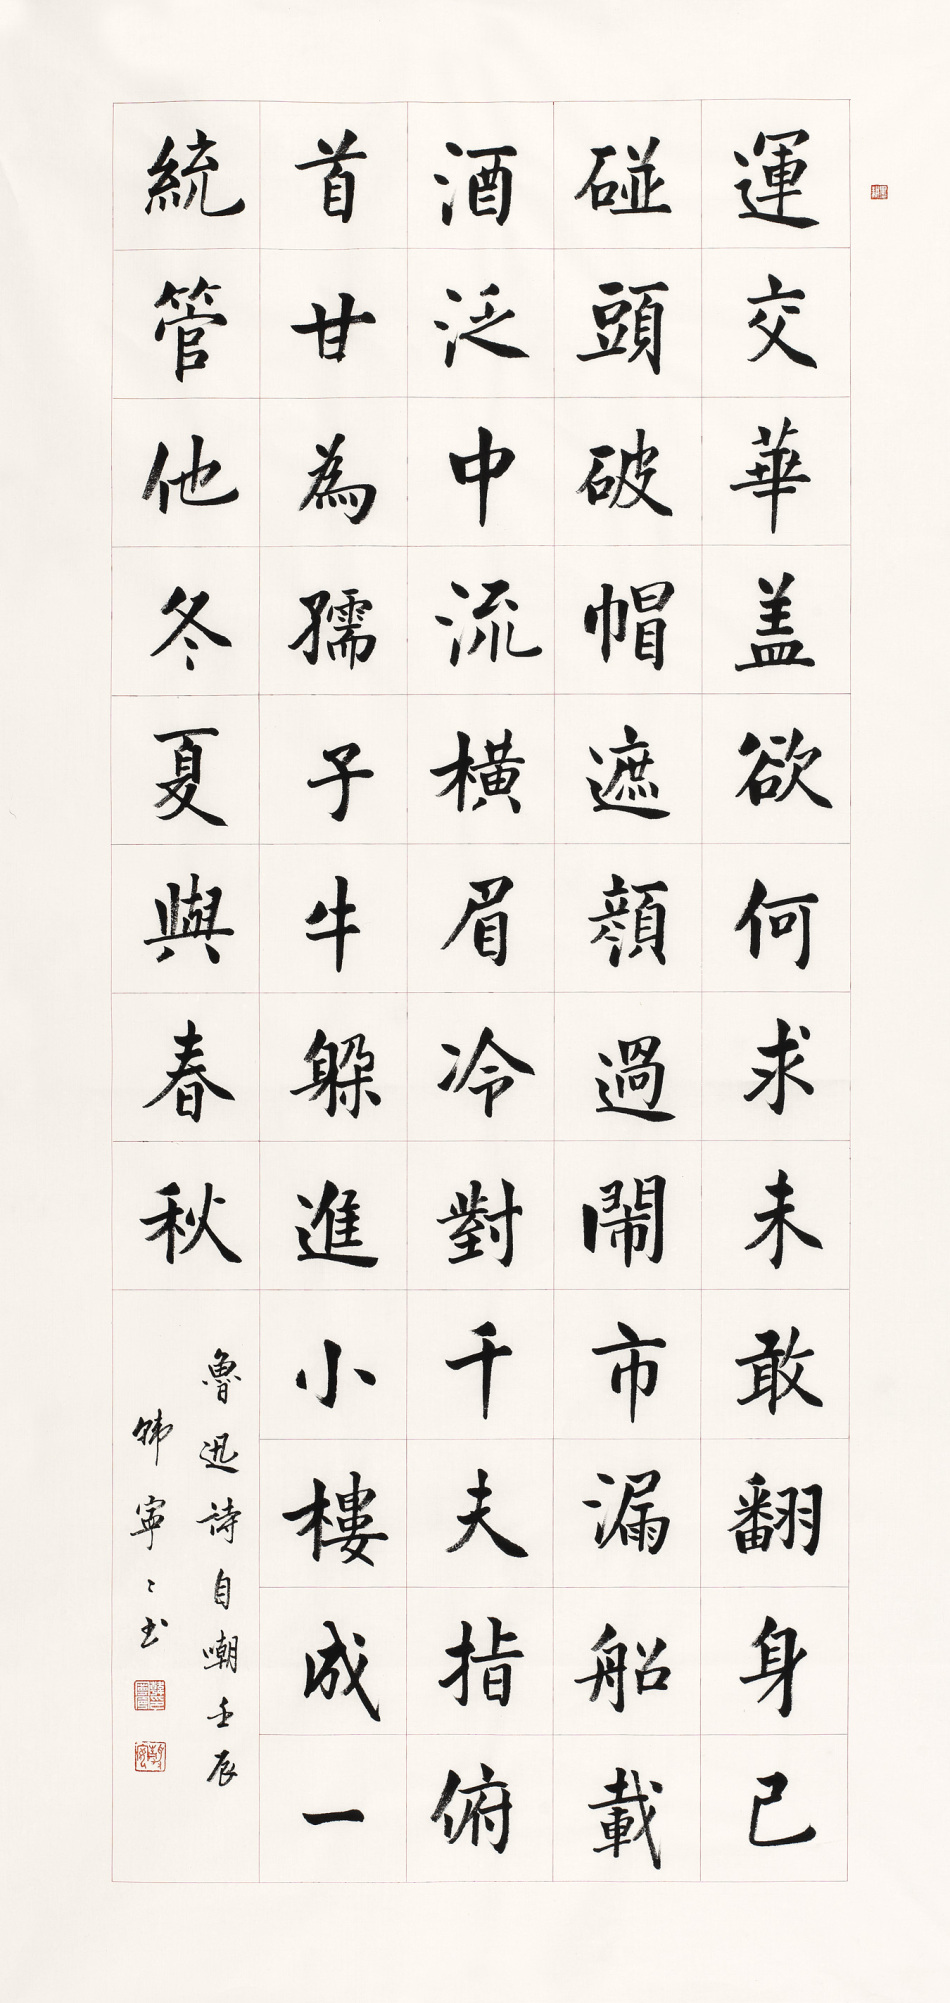 運交華盖欲何求未敢翻身已
碰頭破帽遮顔過鬧市漏船載
酒泛中流橫眉冷對千夫指俯
首甘為孺子牛躲進小樓成一
統管他冬夏與春秋
魯迅詩自嘲壬辰
韩寧〻书